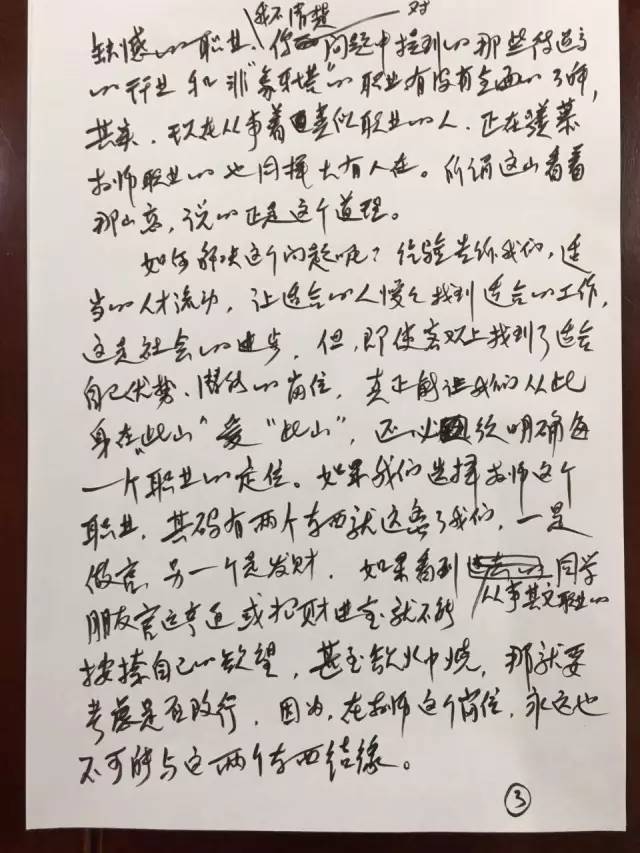 我不清楚 对
缺憾的职业，你问题中提到的那些待遇高
的行业和非“象牙塔”的职业有没有全面的了解，
其实，现在从事着类似职业的人，正在羡慕
教师职业的也同样大有人在。所谓这山看着
那山高，说的正是这个道理。
如何解决这个问题呢？经验告诉我们，适
当的人才流动，让适合的人慢慢找到适合的工作，
这是社会的进步，但，即使客观上找到了适合
自己优势、潜能的岗位，真正能让我们从此
身在“此山”爱“此山”，还必须明确每
一个职业的定位。如果我们选择教师这个
职业，其码有两个东西就远离了我们，一是
做官，另一个是发财，如果看到同学
从事其它职业的
朋友官运亨通或招财进宝就不能
按捺自己的欲望，甚至欲火中烧，那就要
考虑是否改行，因为，在教师这个岗位，永远也
不可能与这两个东西结缘。
③